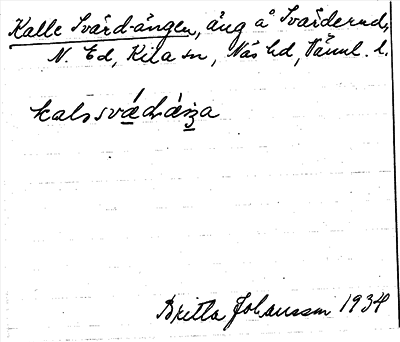 Kalle Svärd-ängen, äng å Svärderud,
N. Ed, Kila sn, Näs hd, Värml. l.
Britta Johansson 1934